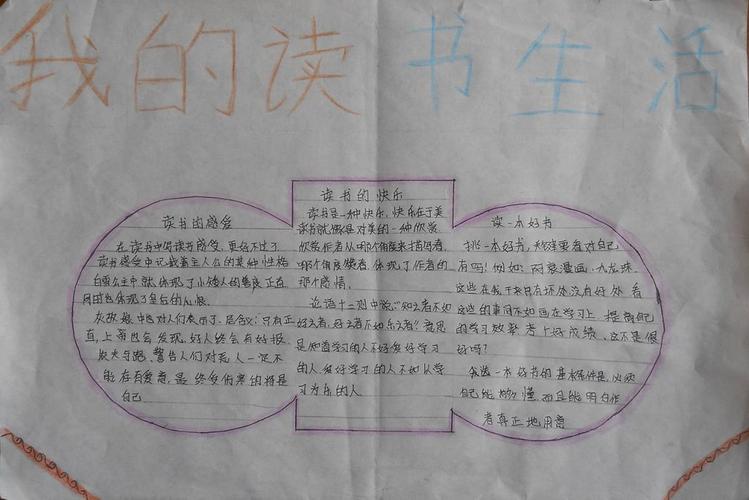 我的读书生活
读书的感受
在读书中写读书感受，更好不过了
读书感受中记载着主人公的某种性格
白雪公主中就体现了小矮人的善良正直
同时也体现了皇后的心狠
灰故娘中也对人们表示了，是含义：只有正
直，上帝也会发现，好人终会有好报
农夫与蛇，警告人们对死人一定不
能存有爱意，最终受伤害的将是
自己
读书的快乐
读书是一种快乐，快乐在于美
读书就像是对美的一种欣赏
欣赏作者从哪个角度来描写着
哪个角度想着，体现了作者的
那个感情
论语十二则中说：“知之者不如
好之者，好之者不如乐之者”意思
是知道学习的人不如爱好学习
的人爱好学习的人不如从学
习为乐的人
读一本好书
挑一本好书，秘诀要看对自己
有吗！例如：两袋漫画，九龙珠
这些在我手来只有坏处没有好处看
这些的事同不如画在学习上提高自己
的学习效率考上好成绩，这不是很
好吗？
我选一本好书的基本条件是，必须
自己能够懂而且能明白作
者真正地用意